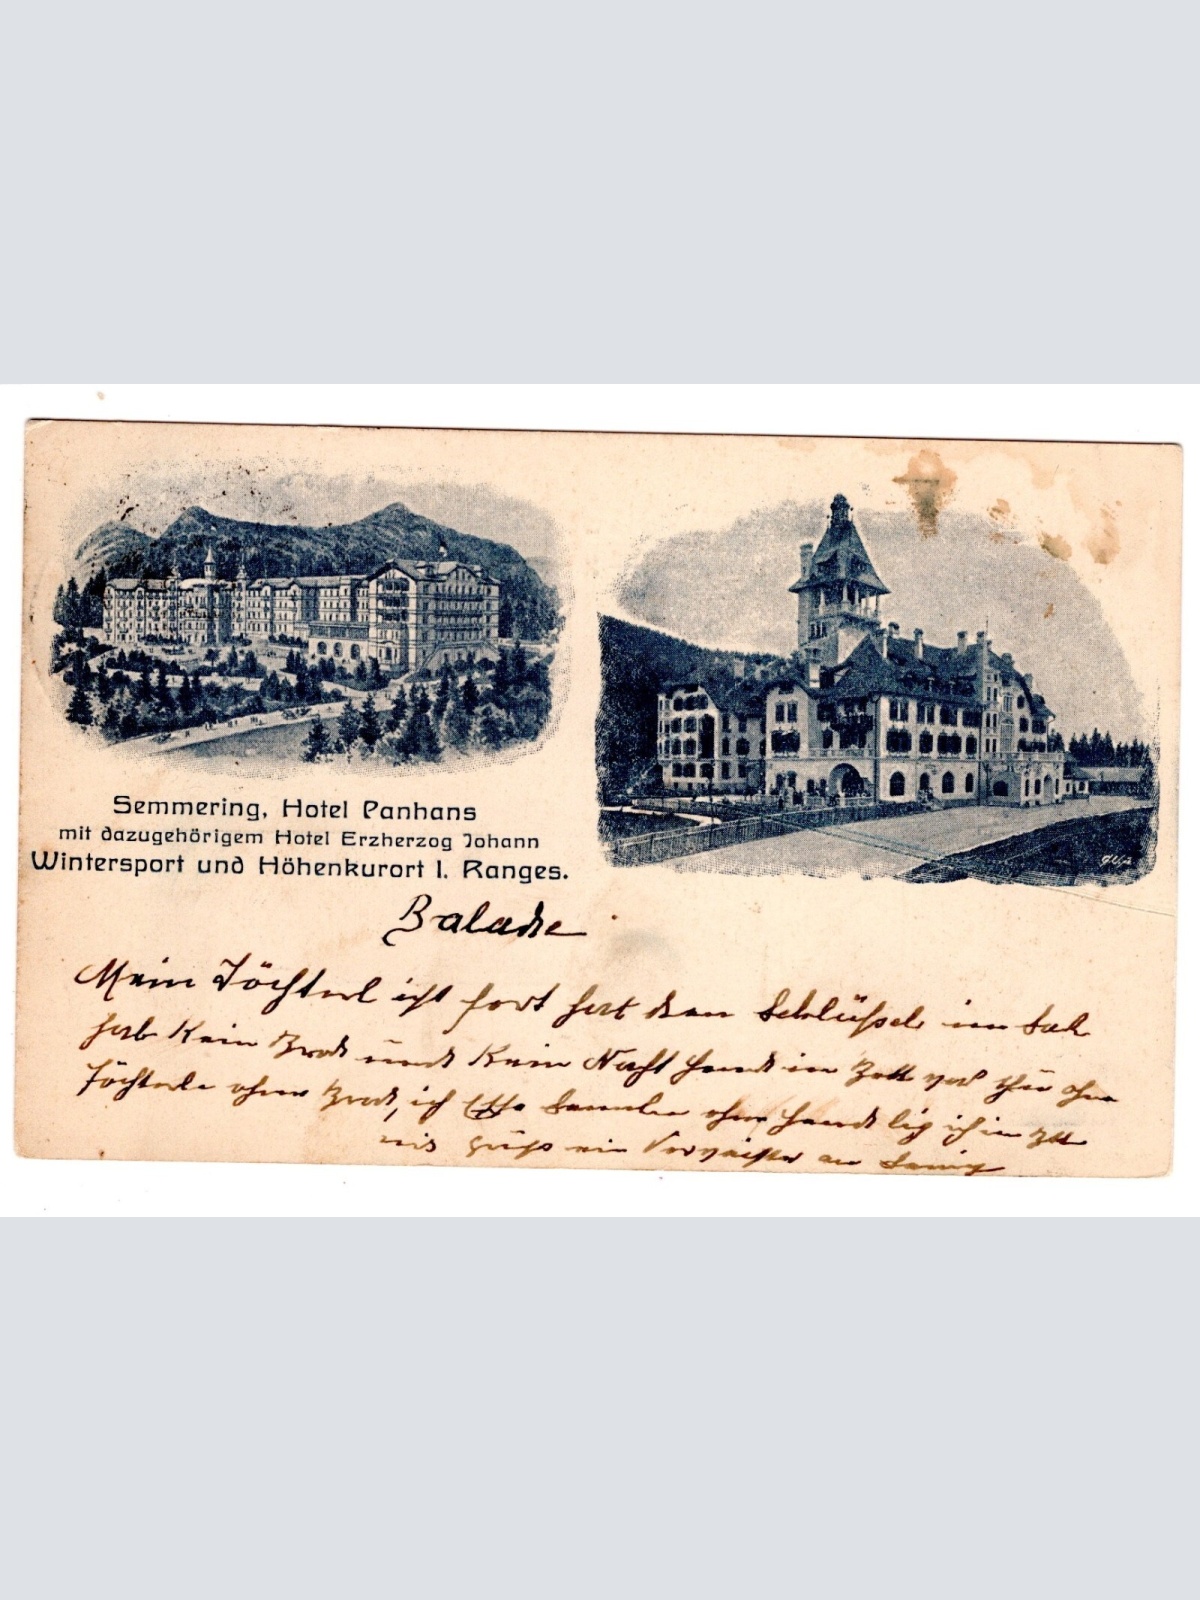 Semmering, Hotel Panhans
mit dazugehörigem Hotel Erzherzog Johann
Wintersport und Höhenkurort I. Ranges.
Balade
Mein Töchterl ist fort hat den Schlüßel im Sak
hab Kein Brod und Kein Nacht Hemd im Bett vor ohne
Töchterle ohne Brod, ich ohne Hemd lig ich im Bett
ein an